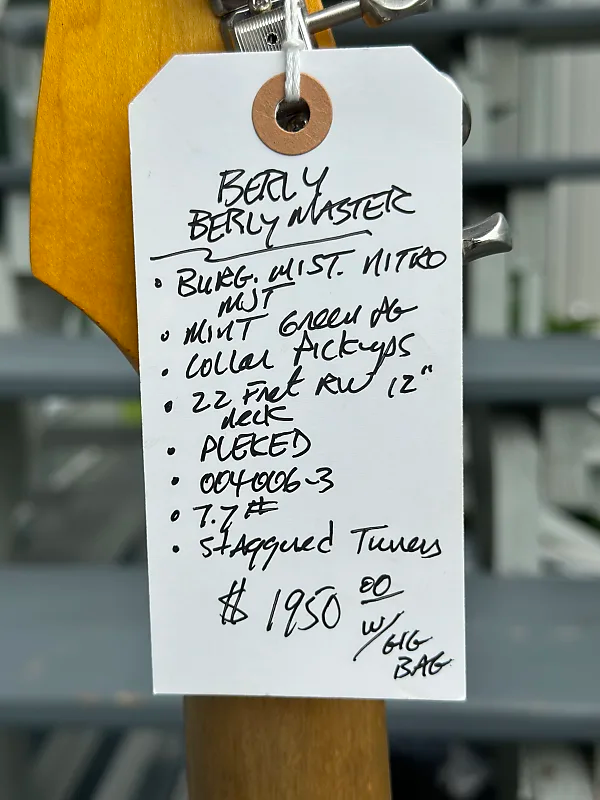 BERLY
BERLY MASTER
• BURG. MIST. NITRO
MJT
• MINT GREEN PG
• COLLAR PICKUPS
• 22 FRET RW 12"
NECK
• PLEKED
• 004006-3
• 7.7#
• STAGGERED TUNERS
$ 1950 00
W/ GIG
BAG